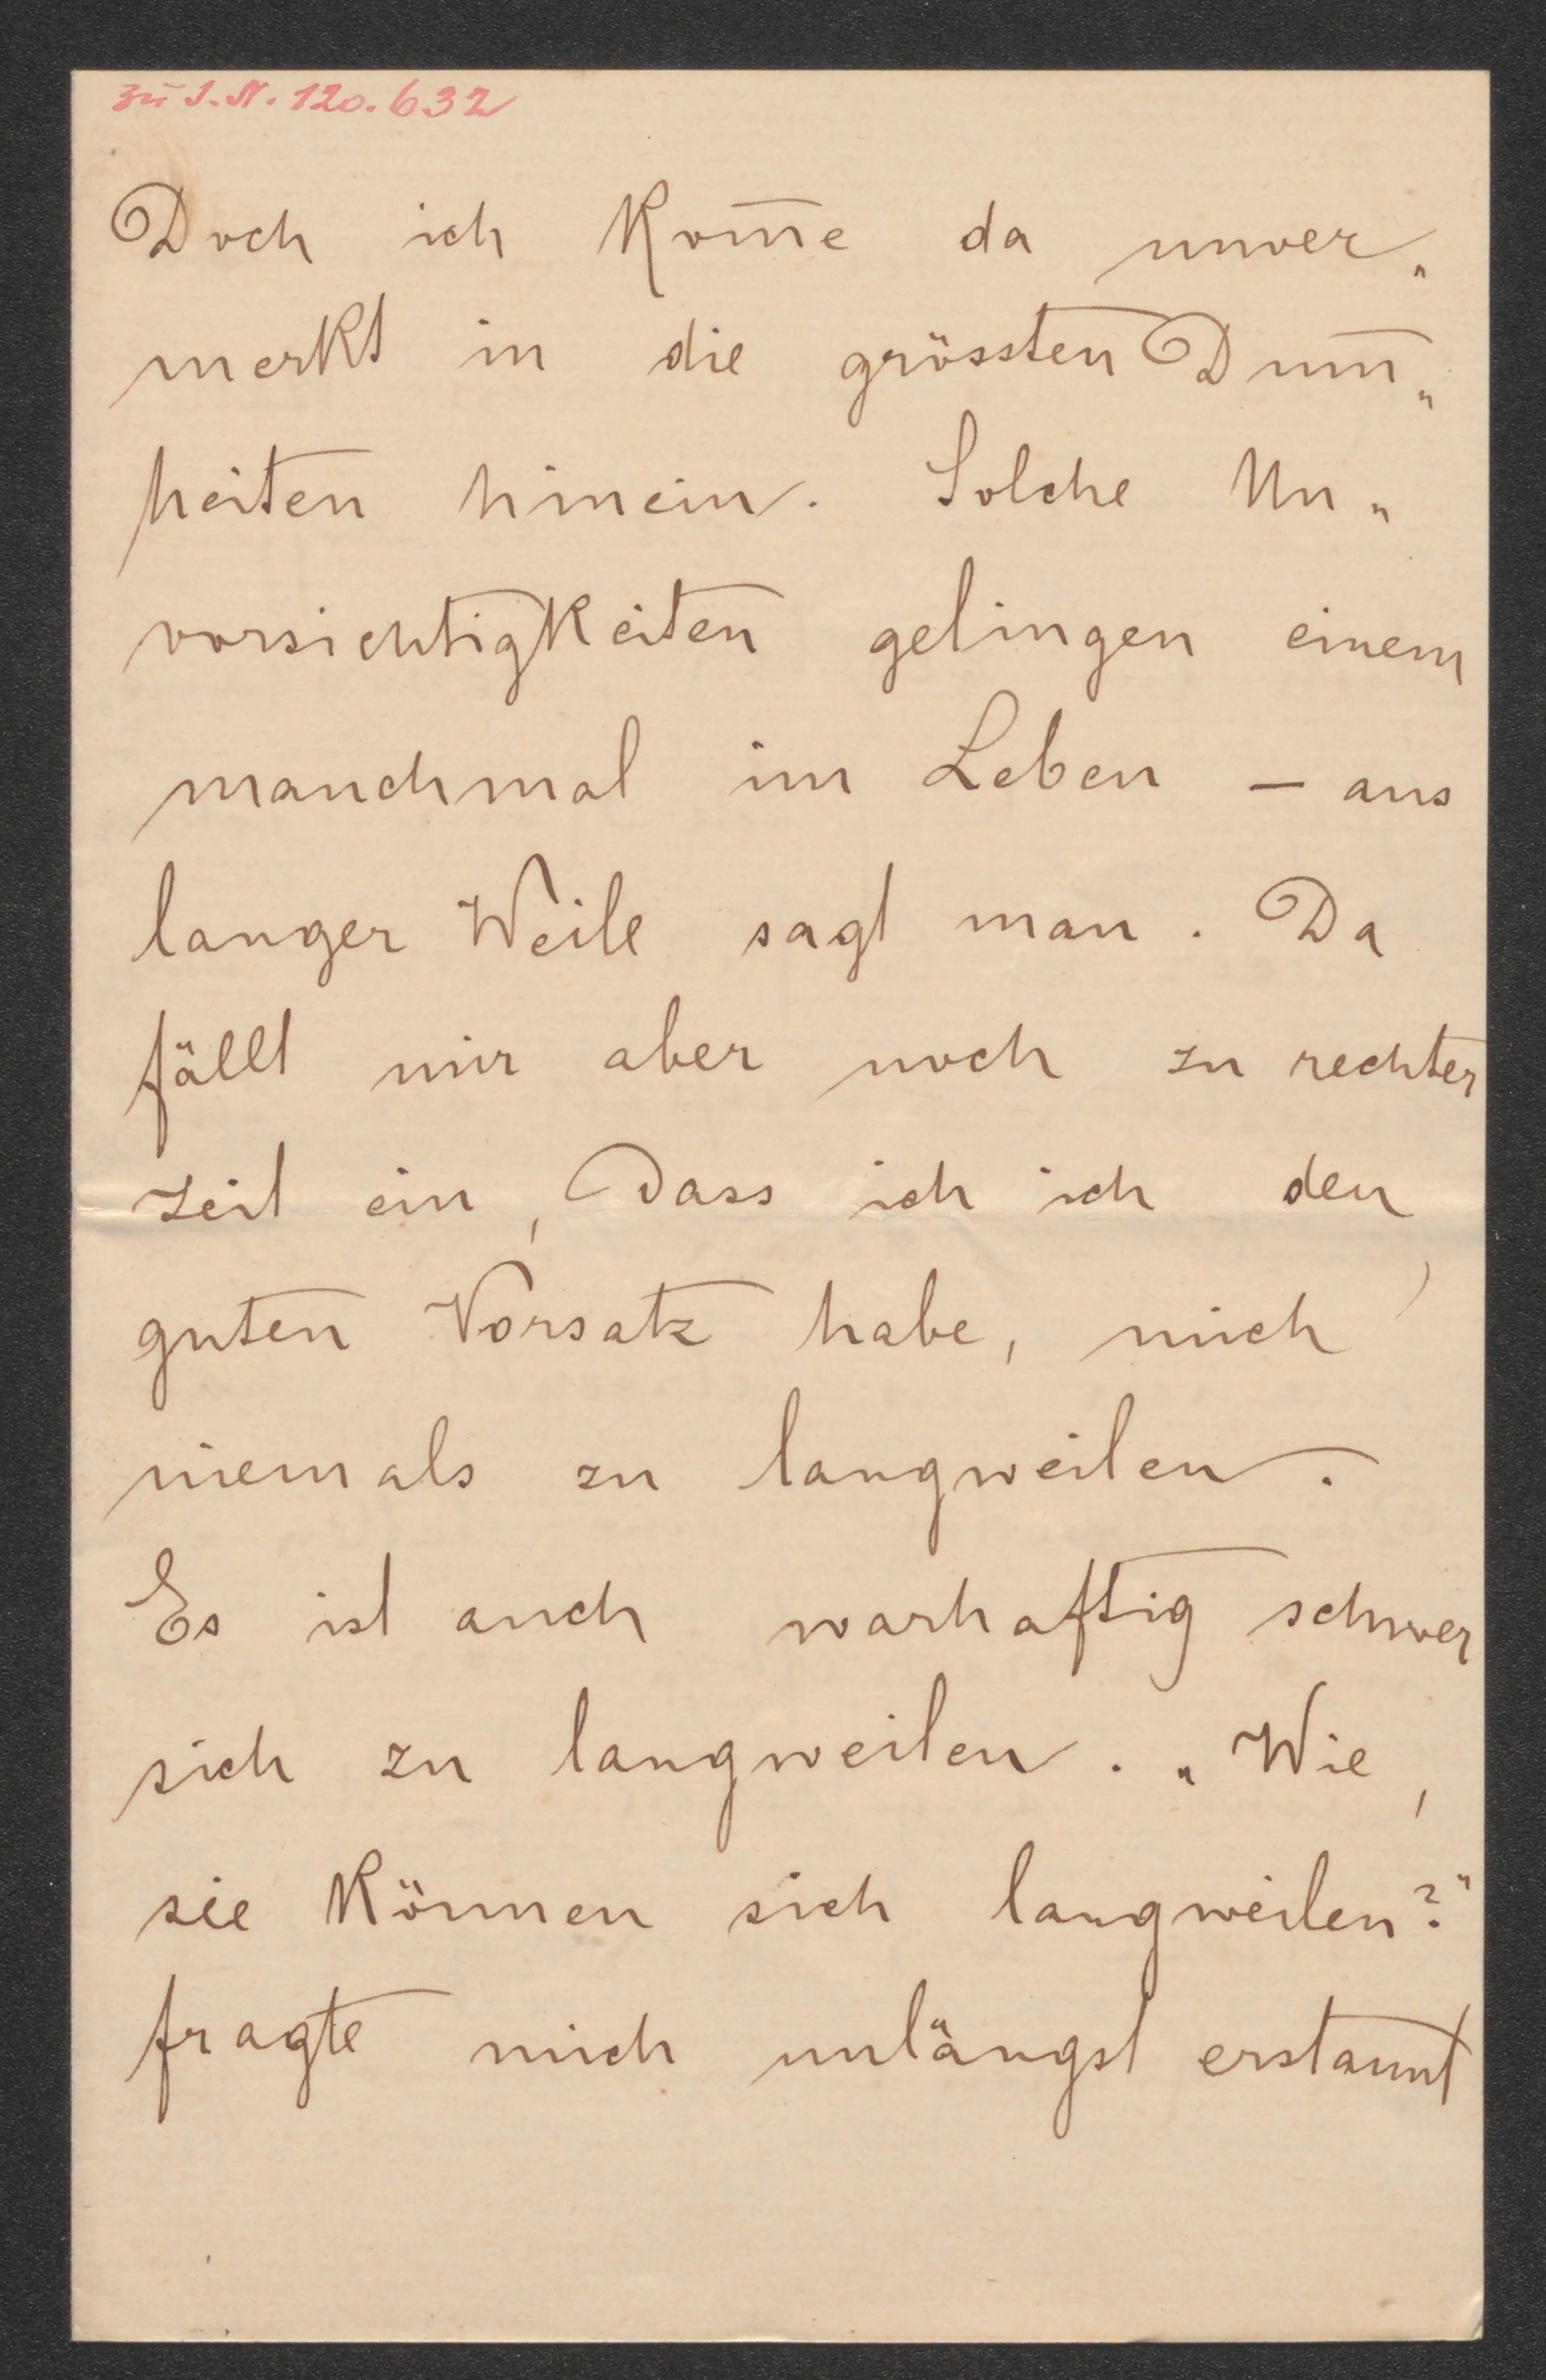 zu I.N. 120.632
Doch ich kom̅e da unver„
merkt in die grössten Dum̅„
heiten hinein. Solche Un„
vorsichtigkeiten gelingen einem
manchmal im Leben – aus
langer Weile sagt man. Da
fällt mir aber noch zu rechter
Zeit ein, dass ich ich den
guten Vorsatz habe, mich
niemals zu langweilen.
Es ist auch warhaftig schwer
sich zu langweilen. „Wie,
sie können sich langweilen?"
fragte mich unlängst erstaunt